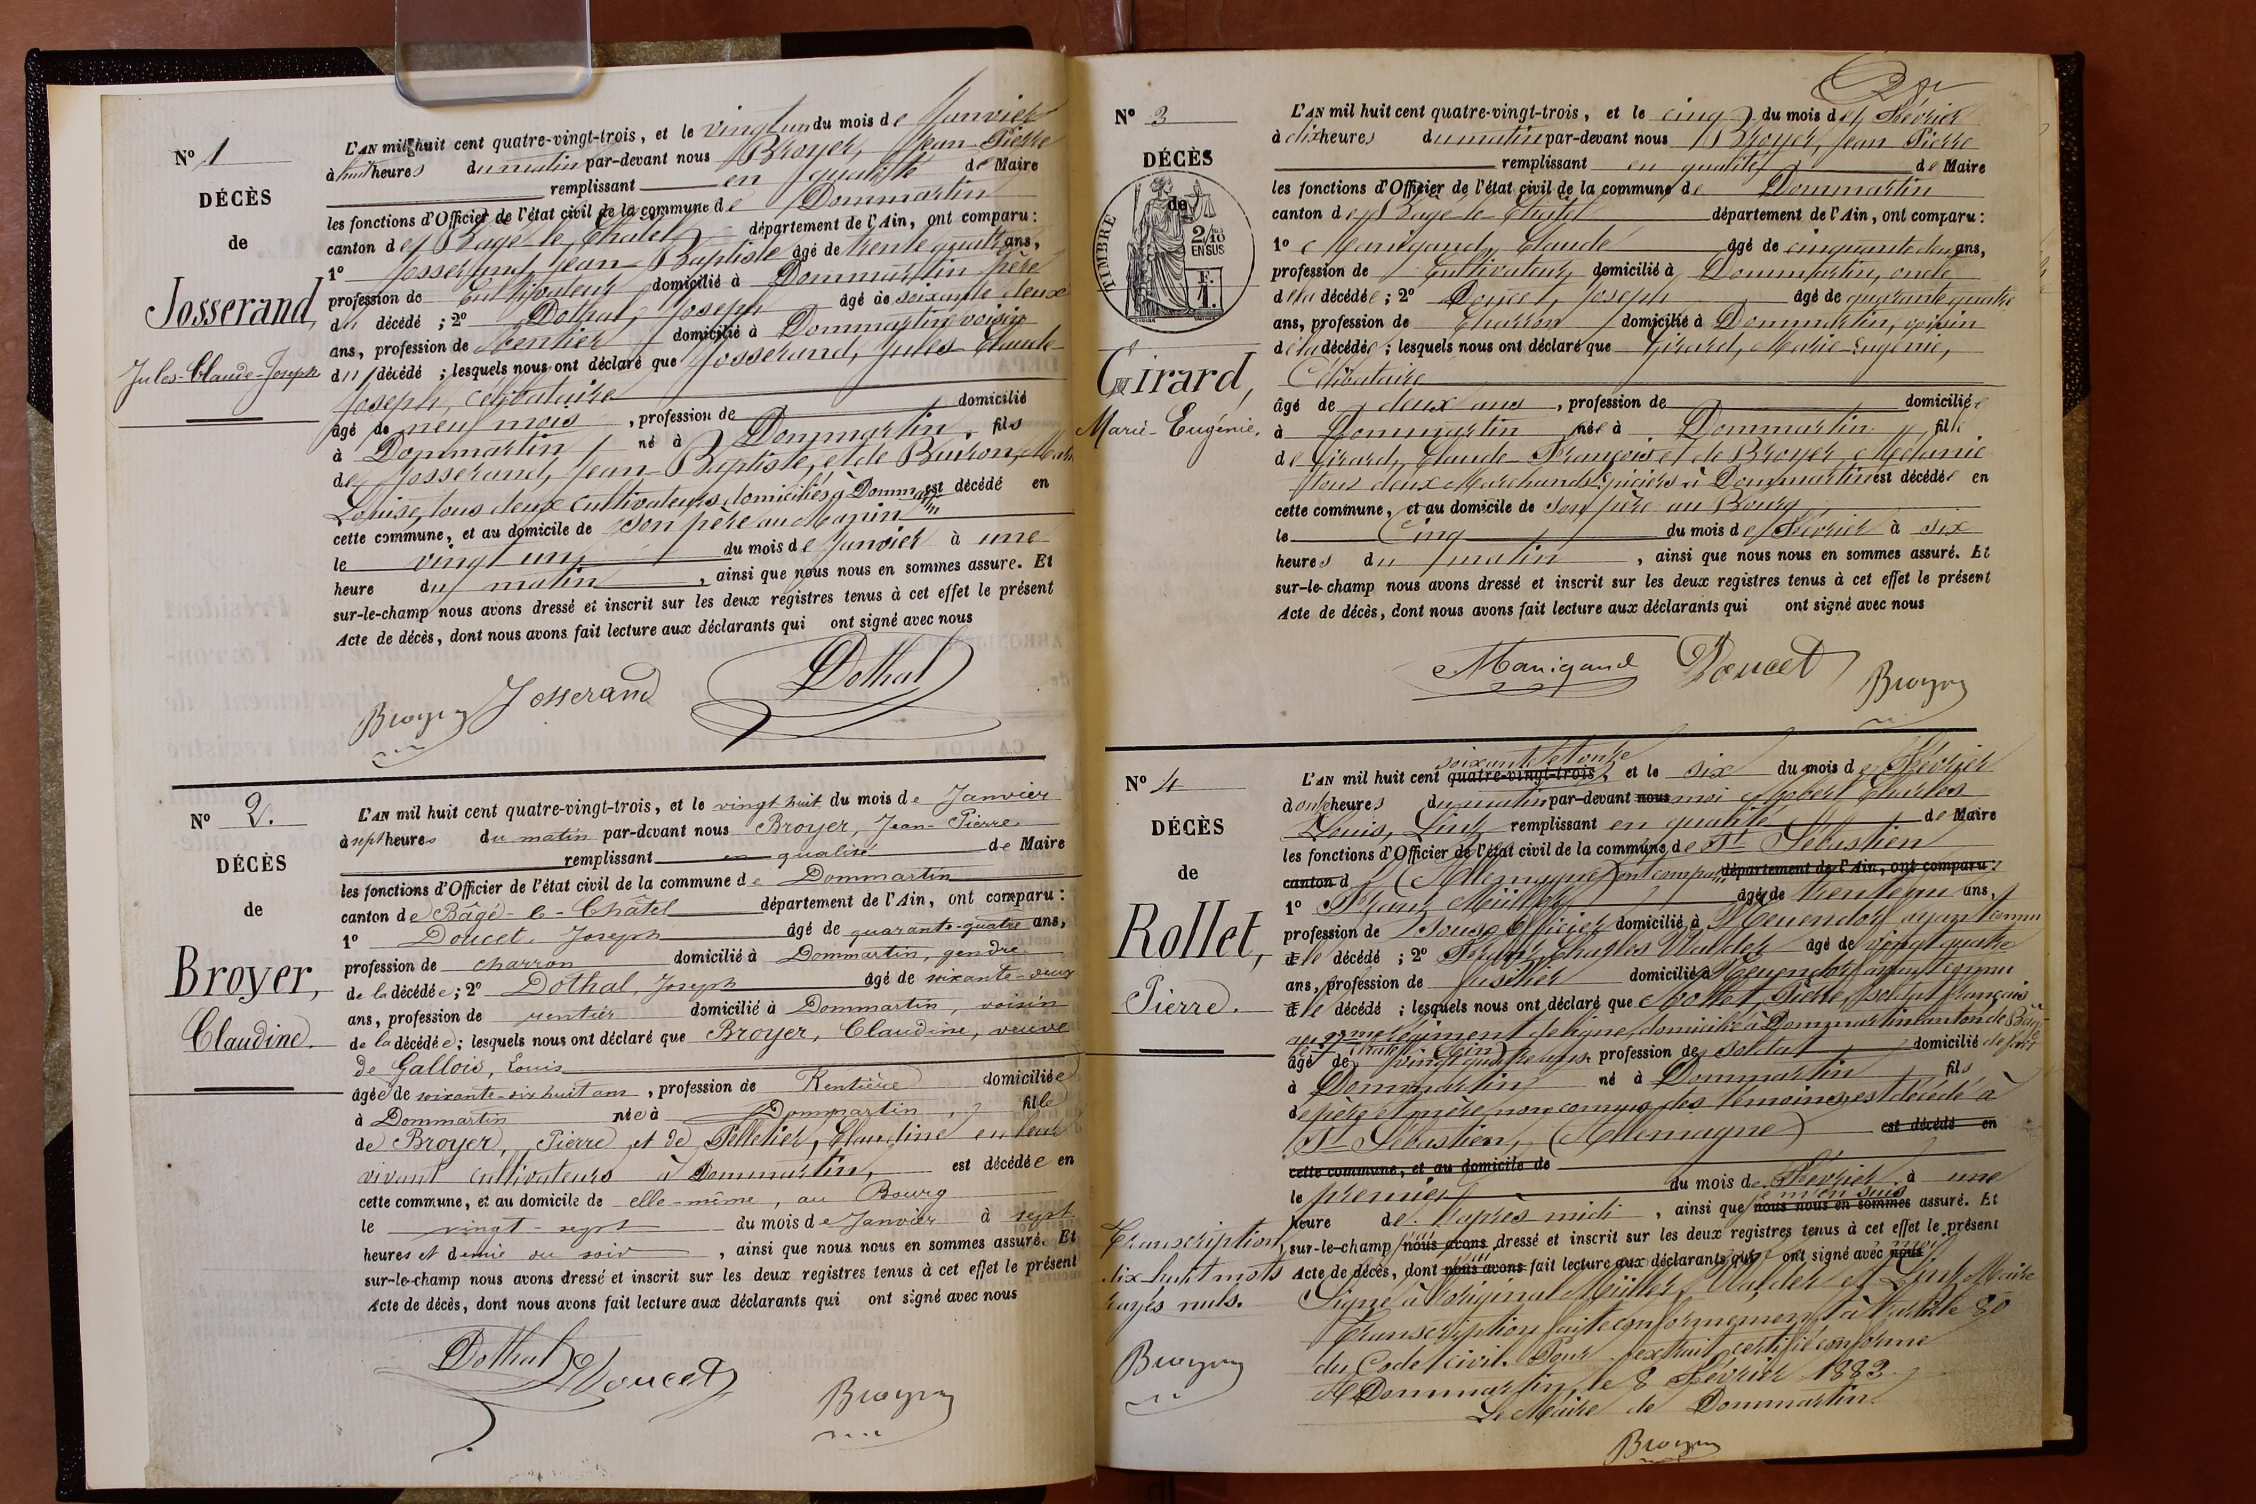 N° 1
DÉCÈS
de
Josserand,
Jules-Claude-Joseph
L'AN mil huit cent quatre-vingt-trois, et le vingt un du mois de Janvier
à huit heures du matin par-devant nous Broyer, Jean-Pierre
remplissant en qualité de Maire
les fonctions d'Officier de l'état civil de la commune de Dommartin
canton de Bâgé-le-Châtel département de l'Ain, ont comparu :
1° Josserand, Jean-Baptiste âgé de trente quatre ans,
profession de Cultivateur domicilié à Dommartin père
du décédé ; 2° Dothal, Joseph âgé de soixante deux
ans, profession de rentier domicilié à Dommartin voisin
du décédé ; lesquels nous ont déclaré que Josserand, Jules-Claude-
Joseph, célibataire
âgé de neuf mois, profession de domicilié
à Dommartin né à Dommartin, fils
de Josserand, Jean-Baptiste, et de Buiron,
Louise, tous deux cultivateurs domiciliés à Domm est décédé en
cette commune, et au domicile de son père au
le vingt un du mois de Janvier à une
heure du matin, ainsi que nous nous en sommes assuré. Et
sur-le-champ nous avons dressé et inscrit sur les deux registres tenus à cet effet le présent
Acte de décès, dont nous avons fait lecture aux déclarants qui ont signé avec nous
Broyer Josserand Dothal
N° 2.
DÉCÈS
de
Broyer,
Claudine.
L'AN mil huit cent quatre-vingt-trois, et le vingt huit du mois de Janvier
à sept heures du matin par-devant nous Broyer, Jean-Pierre
remplissant en qualité de Maire
les fonctions d'Officier de l'état civil de la commune de Dommartin
canton de Bâgé-le-Châtel département de l'Ain, ont comparu :
1° Doucet, Joseph âgé de quarante-quatre ans,
profession de charron domicilié à Dommartin, gendre
de la décédée ; 2° Dothal, Joseph âgé de soixante-deux
ans, profession de rentier domicilié à Dommartin, voisin
de la décédée ; lesquels nous ont déclaré que Broyer, Claudine, veuve
de Gallois, Louis
âgée de soixante-dix huit ans, profession de Rentière domiciliée
à Dommartin née à Dommartin, fille
de Broyer, Pierre et de Pelletier, Claudine en leur
vivant cultivateurs à Dommartin, est décédée en
cette commune, et au domicile de elle-même, au Bourg
le vingt-sept du mois de Janvier à sept
heures et demie du soir, ainsi que nous nous en sommes assuré. Et
sur-le-champ nous avons dressé et inscrit sur les deux registres tenus à cet effet le présent
Acte de décès, dont nous avons fait lecture aux déclarants qui ont signé avec nous
Dothal Doucet Broyer
N° 3
DÉCÈS
de
TIMBRE
2/10
EN SUS
F.
1.
Girard,
Marie-Eugénie.
L'AN mil huit cent quatre-vingt-trois, et le cinq du mois de Février
à dix heures du matin par-devant nous Broyer, Jean Pierre
remplissant en qualité de Maire
les fonctions d'Officier de l'état civil de la commune de Dommartin
canton de Bâgé-le-Châtel département de l'Ain, ont comparu :
1° Manigand, Claude âgé de cinquante deux ans,
profession de Cultivateur domicilié à Dommartin, oncle
de la décédée ; 2° Doucet, Joseph âgé de quarante quatre
ans, profession de Charron domicilié à Dommartin, voisin
de la décédée ; lesquels nous ont déclaré que Girard, Marie-Eugénie,
Célibataire
âgé de deux ans, profession de domiciliée
à Dommartin née à Dommartin, fille
de Girard, Claude-François et de Broyer, Mélanie
tous deux Marchands épiciers à Dommartin est décédée en
cette commune, et au domicile de son père au Bourg
le Cinq du mois de Février à six
heures du matin, ainsi que nous nous en sommes assuré. Et
sur-le-champ nous avons dressé et inscrit sur les deux registres tenus à cet effet le présent
Acte de décès, dont nous avons fait lecture aux déclarants qui ont signé avec nous
Manigand Doucet Broyer
N° 4
DÉCÈS
de
Rollet,
Pierre.
soixante et onze
L'AN mil huit cent quatre-vingt-trois, et le six du mois de Février
à onze heures du matin par-devant nous moi Robert Charles
Louis, Lint remplissant en qualité de Maire
les fonctions d'Officier de l'état civil de la commune de St Sébastien
canton d (Allemagne) ont comparu département de l'Ain, ont comparu :
1° Franz Müller âgé de trente un ans,
profession de Sous-Officier domicilié à Neuendorf ayant connu
d le décédé ; 2° Franz, Charles Walder âgé de vingt quatre
ans, profession de fusilier domicilié à Neuendorf ayant connu
d le décédé ; lesquels nous ont déclaré que Rollet, Pierre, soldat français
régiment de ligne, domicilié à Dommartin canton de Bâgé-
le-Châtel (Ain)
âgé de vingt quatre ans, profession de soldat domicilié de fait
à Dommartin né à Dommartin, fils
de père et mère non connus des témoins, est décédé à
St Sébastien, (Allemagne) est décédé en
cette commune, et au domicile de
le premier du mois de Février à une
heure de l'après midi, ainsi que je m'en suis nous nous en sommes assuré. Et
sur-le-champ nous avons dressé et inscrit sur les deux registres tenus à cet effet le présent
Acte de décès, dont nous avons fait lecture aux déclarants qui ont signé avec nous moi
Signé à l'original Müller, Walder et Lint Maire
Transcription faite conformément à l'article 80
du Code civil. Pour extrait certifié conforme
A Dommartin, le 8 Février 1883.
Le Maire de Dommartin
Broyer
Transcription,
dix-huit mots
rayés nuls.
Broyer